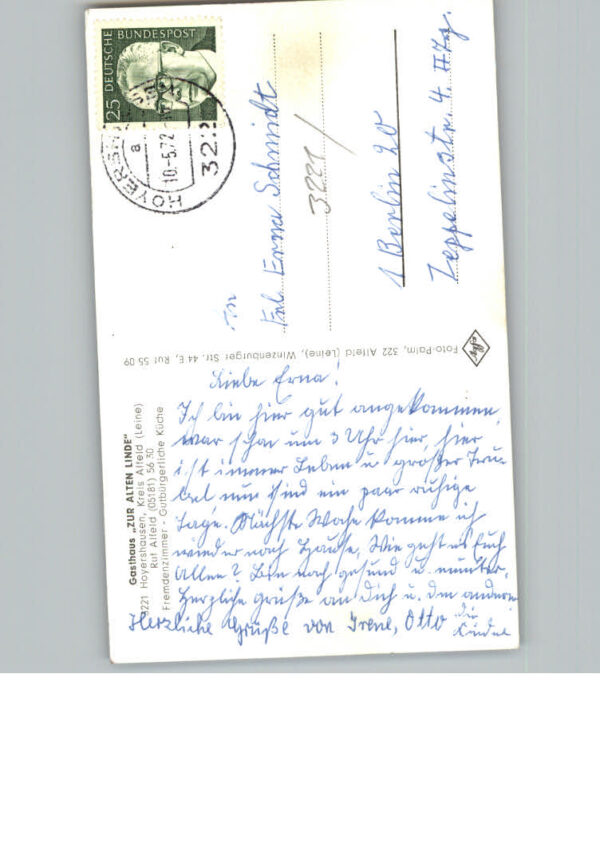 25 DEUTSCHE BUNDESPOST
322
10.-5.72
a
An
Frl. Erna Schmidt
3221/
1 Berlin 20
Zeppelinstr. 4. IIIg.
Foto-Palm, 322 Alfeld (Leine), Winzenburger Str. 44 E, Ruf 55 09
Gasthaus „ZUR ALTEN LINDE"
3221 Hoyershausen, Kreis Alfeld (Leine)
Ruf Alfeld (05181) 56 30
Fremdenzimmer - Gutbürgerliche Küche
Liebe Erna!
Ich bin hier gut angekommen,
war schon um 3 Uhr hier, hier
ist immer Leben u großer Tru-
bel nun sind ein paar ruhige
Tage. Nächste Woche komme ich
wieder nach Hause, Wie geht es Euch
Allen? Bin noch gesund u. munter.
Herzliche Grüße an Dich u. den anderen
Herzliche Grüße von Irene, Otto die
Kinder